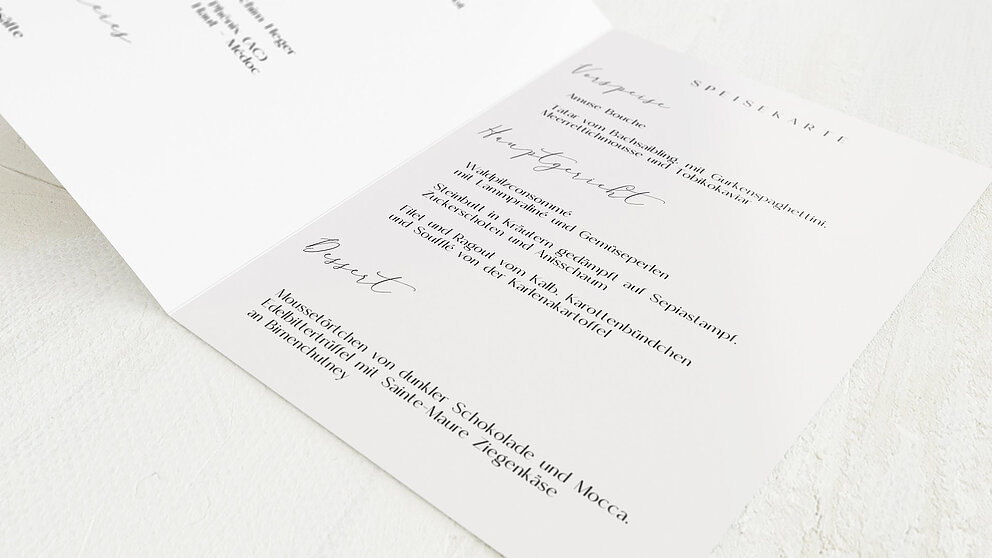 Heger
Phénix (AC)
Haut - Médoc
SPEISEKARTE
Vorspeise
Amuse Bouche
Tatar vom Bachsaibling mit Gurkenspaghettini,
Meerrettichmousse und Tobikokaviar
Hauptgericht
Waldpilzconsommé
mit Lammpraliné und Gemüseperlen
Steinbutt in Kräutern gedämpft auf Sepiastampf,
Zuckerschoten und Anisschaum
Filet und Ragout vom Kalb, Karottenbündchen
und Soufflé von der Karlenakartoffel
Dessert
Moussetörtchen von dunkler Schokolade und Mocca,
Edelbittertrüffel mit Sainte-Maure Ziegenkäse
an Birnenchutney